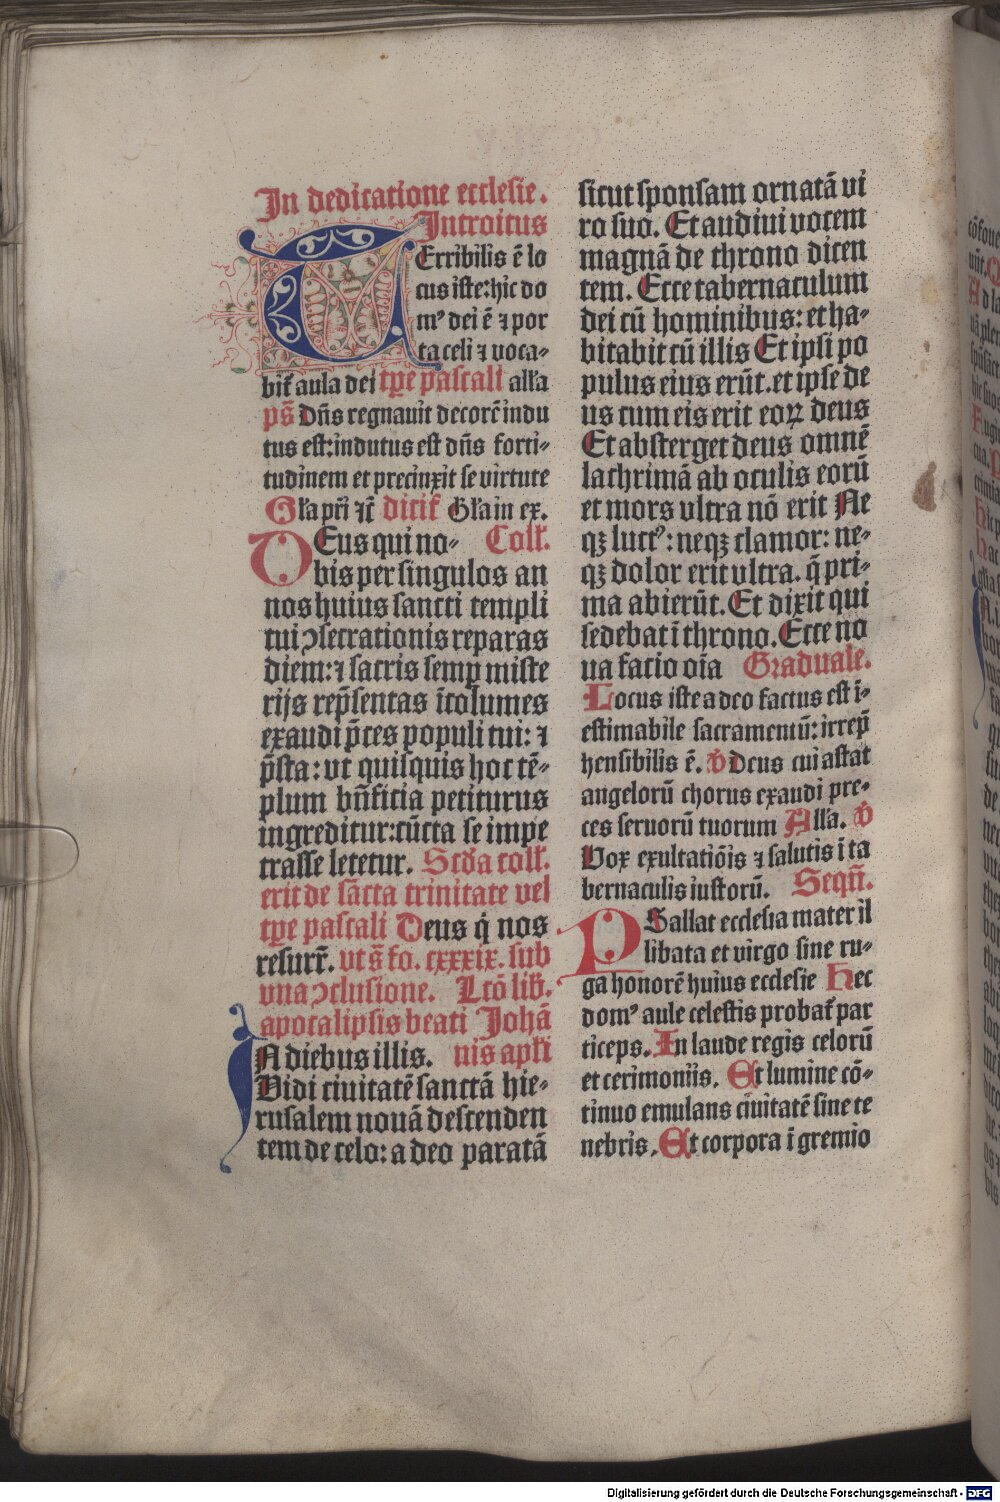 In dedicatione ecclesie.
Introitus
TErribilis ē lo
cus iste: hic do
mꝰ dei ē ⁊ por
ta celi ⁊ voca-
bit̛ aula dei tꝑe pascali alľa
ps̄ Dn̄s regnauit decorē indu
tus est: indutus est dn̄s forti-
tudinem et precinxit se virtute
Gľa pr̄i ⁊c̄ dicit̛ Gľa in ex.
DEus qui no- Coll̛.
bis per singulos an
nos huius sancti templi
tui ↄsecrationis reparas
diem: ⁊ sacris semꝑ miste
rijs rep̄sentas īcolumes
exaudi p̄ces populi tui: ⁊
p̄sta: vt quisquis hoc tē-
plum bn̄ficia petiturus
ingreditur: cūcta se impe
trasse letetur. Scďa coll̛.
erit de sācta trinitate vel
tꝑe pascali Deus q̇ nos
resurr̄. vt s̄ fo. cxxxix. sub
vna ↄclusione. Lcō lib̛.
apocalipsis beati Johā
IN diebus illis. nis apľi
Vidi ciuitatē sanctā hie-
rusalem nouā descenden
tem de celo: a deo paratā
sicut sponsam ornatā vi
ro suo. Et audiui vocem
magnā de throno dicen
tem. Ecce tabernaculum
dei cū hominibus: et ha-
bitabit cū illis Et ipsi po
pulus eius erūt. et ipse de
us cum eis erit eoꝝ deus
Et absterget deus omnē
lachrimā ab oculis eorū
et mors vltra nō erit Ne
qꝫ luctꝰ: neqꝫ clamor: ne-
qꝫ dolor erit vltra. q̄ pri-
ma abierūt. Et dixit qui
sedebat ī throno. Ecce no
ua facio oīa Graduale.
Locus iste a deo factus est ī-
estimabile sacramentū: irrep̄
hensibilis ē. ꝟ Deus cui astat
angelorū chorus exaudi pre-
ces seruorū tuorum Alľa. ꝟ
Vox exultatiōis ⁊ salutis ī ta
bernaculis iustorū. Seqn̄.
PSallat ecclesia mater il
libata et virgo sine ru-
ga honorē huius ecclesie Hec
domꝰ aule celestis probat̛ par
ticeps. In laude regis celorū
et cerimoniis. Et lumine cō-
tinuo emulans ciuitatē sine te
nebris. Et corpora ī gremio
Digitalisierung gefördert durch die Deutsche Forschungsgemeinschaft - DFG